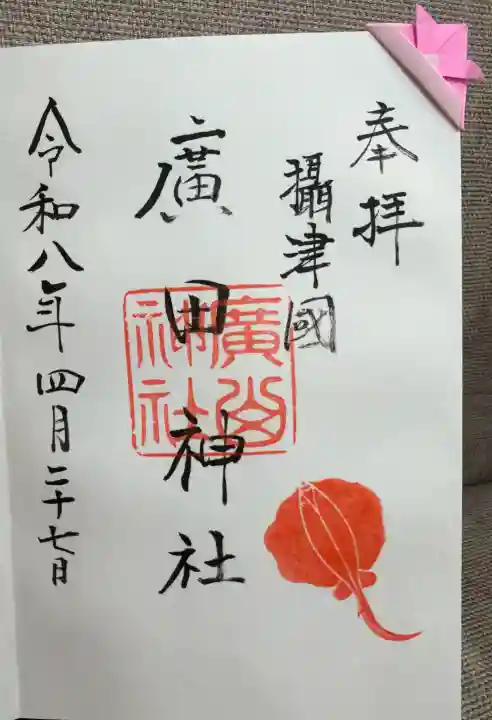 奉拝
攝津國
廣田神社
令和八年四月二十七日